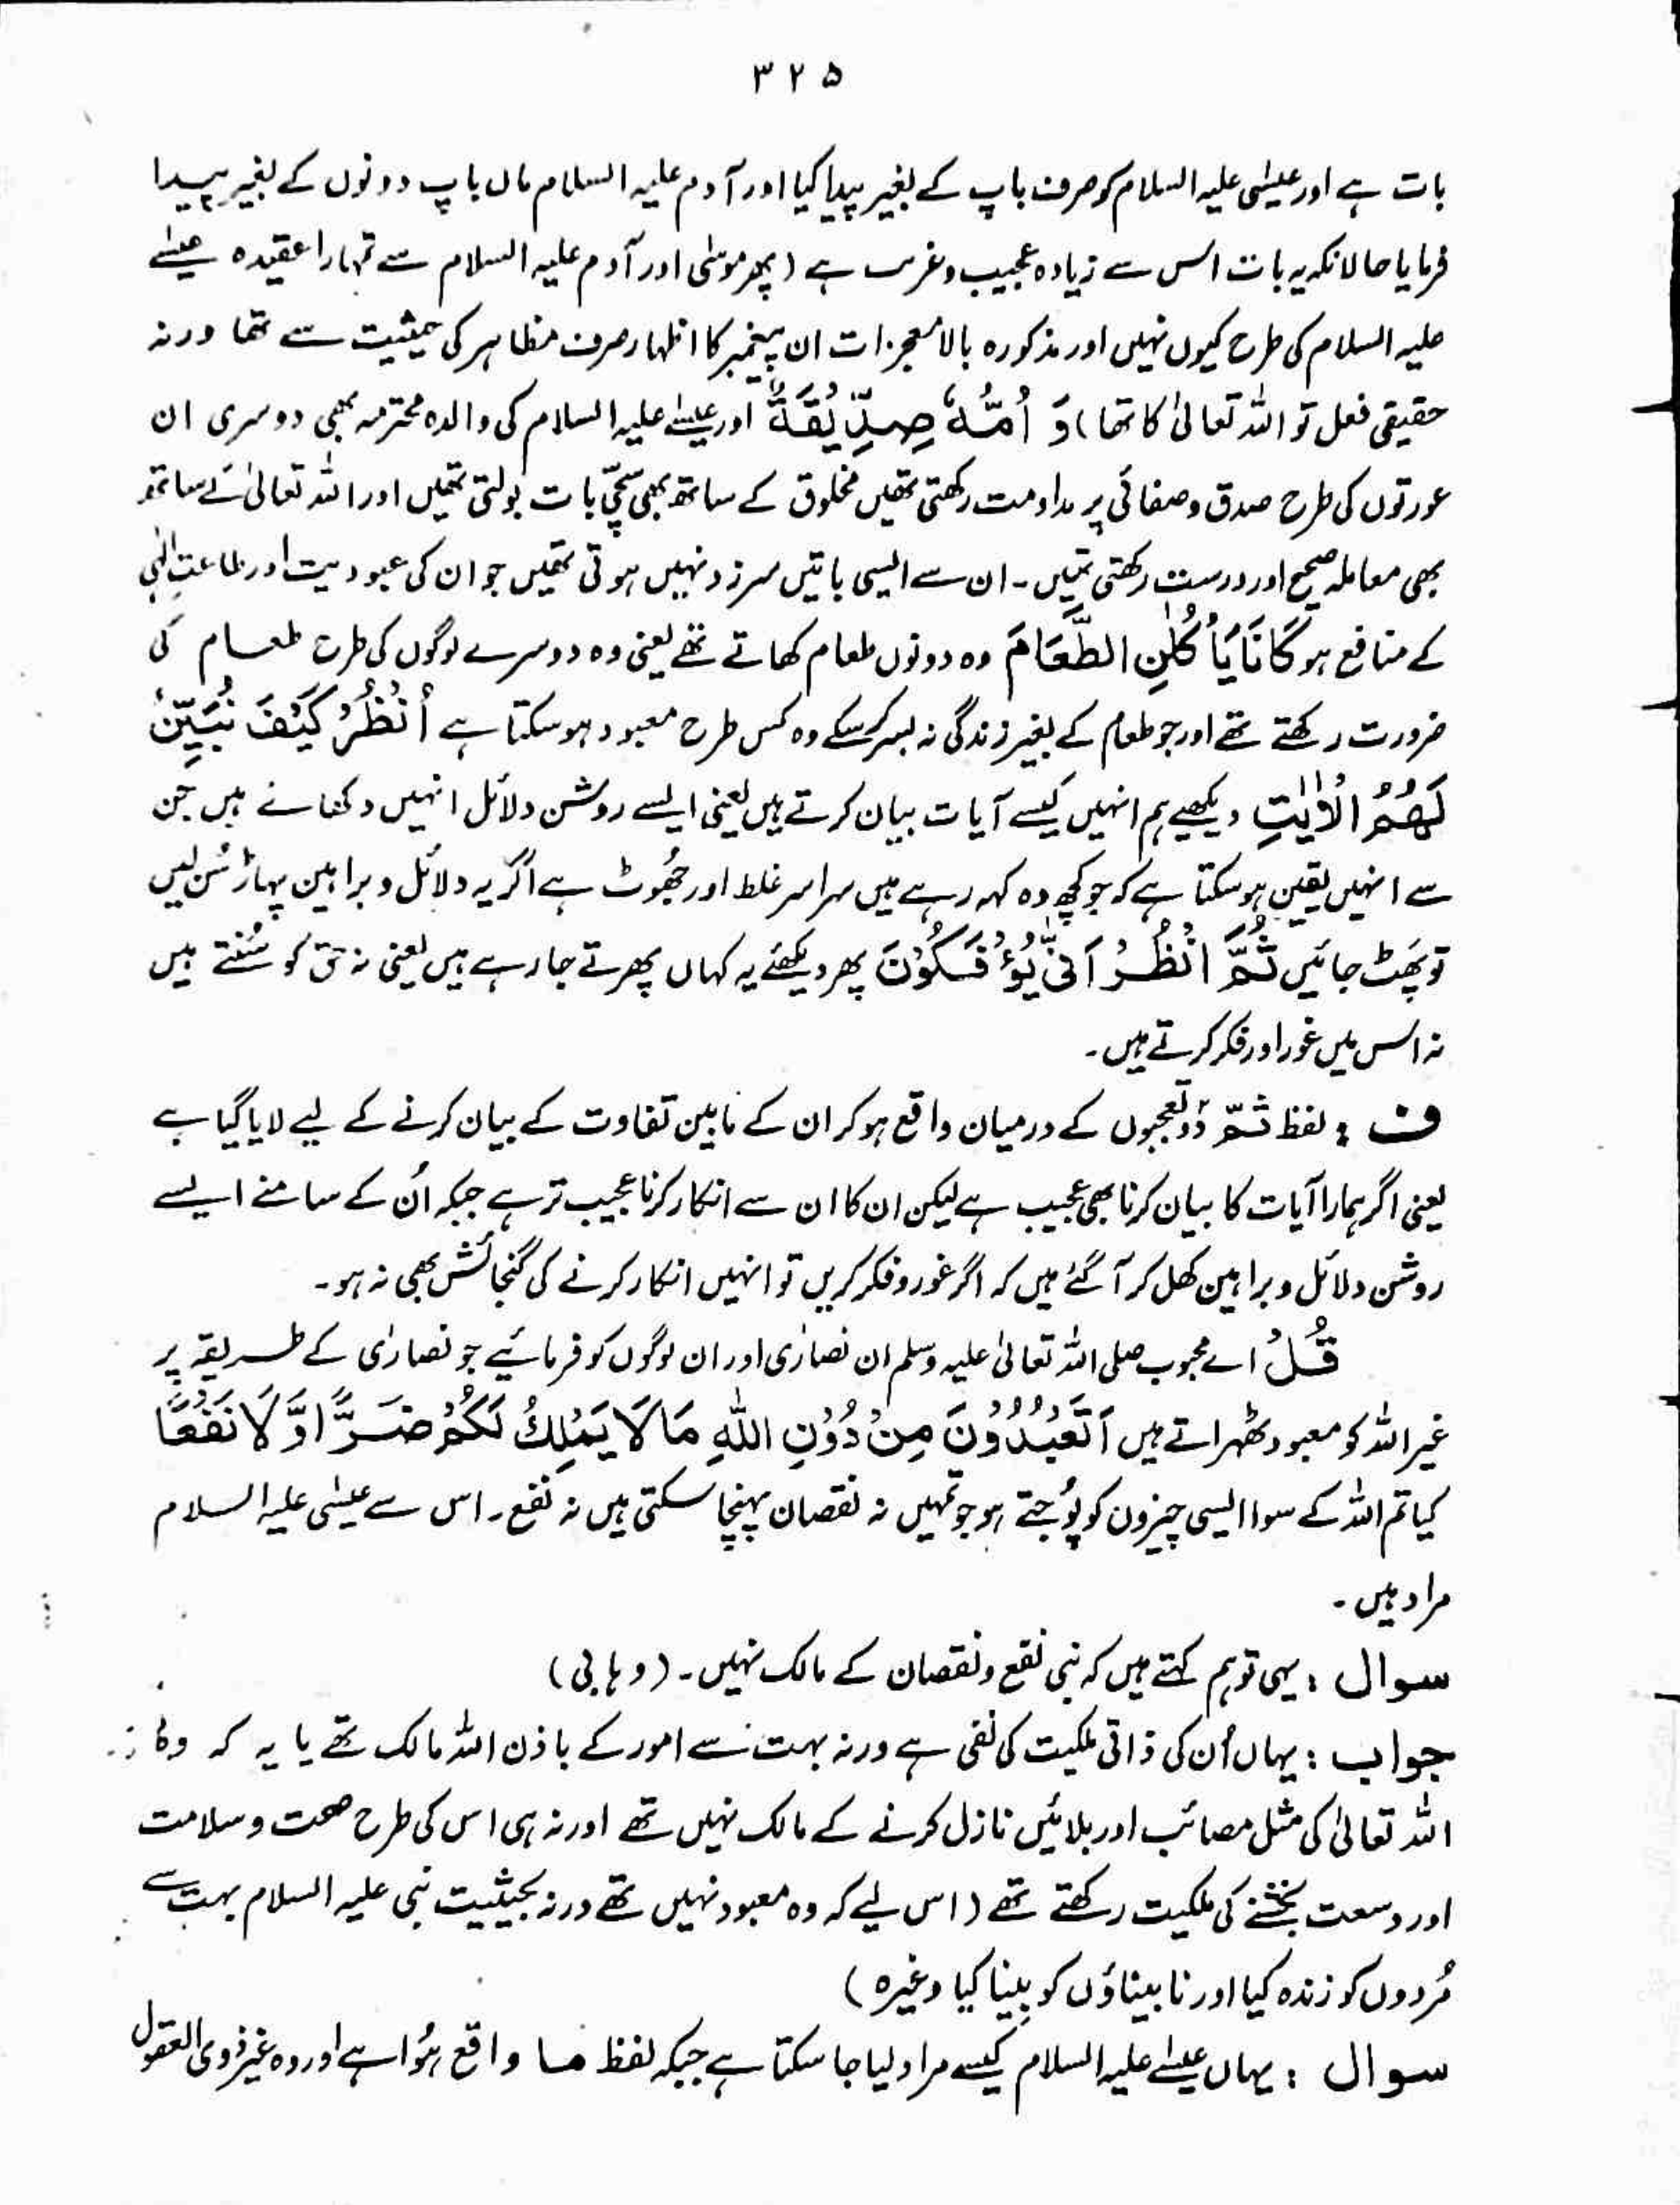 ۳۲۵
بات ہے اور عیسٰی علیہ السلام کو صرف باپ کے بغیر پیدا کیا اور آدم علیہ السلام ماں باپ دونوں کے بغیر پیدا
فرمایا حالانکہ یہ بات اس سے زیادہ عجیب و غریب ہے (پھر موسٰی اور آدم علیہ السلام سے تمہارا عقیدہ عیسٰے
علیہ السلام کی طرح کیوں نہیں اور مذکورہ بالا معجزات ان پیغمبر کا اظہار صرف مظاہر کی حیثیت سے تھا ورنہ
حقیقی فعل تو اللہ تعالیٰ کا تھا) وَ اُمُّہٗ صِدِّیْقَۃٌ اور عیسٰے علیہ السلام کی والدہ محترمہ بھی دوسری ان
عورتوں کی طرح صدق و صفائی پر مداومت رکھتی تھیں مخلوق کے ساتھ بھی سچّی بات بولتی تھیں اور اللہ تعالیٰ کے ساتھ
بھی معاملہ صحیح اور درست رکھتی تھیں۔ ان سے ایسی باتیں سرزد نہیں ہوتی تھیں جو ان کی عبودیت اور طاعتِ الٰہی
کے منافع ہو کَانَا یَاْکُلٰنِ الطَّعَامَ وہ دونوں طعام کھاتے تھے یعنی وہ دوسرے لوگوں کی طرح طعام کی
ضرورت رکھتے تھے اور جو طعام کے بغیر زندگی نہ بسر کرسکے وہ کس طرح معبود ہوسکتا ہے اُنْظُرْ کَیْفَ نُبَیِّنُ
لَھُمُ الْاٰیٰتِ دیکھیے ہم انہیں کیسے آیات بیان کرتے ہیں یعنی ایسے روشن دلائل انہیں دکھاتے ہیں جن
سے انہیں یقین ہوسکتا ہے کہ جو کچھ وہ کہہ رہے ہیں سراسر غلط اور جھُوٹ ہے اگر یہ دلائل و براہین پہاڑ سُن لیں
تو پھٹ جائیں ثُمَّ انْظُرْ اَنّٰی یُؤْفَکُوْنَ پھر دیکھئے یہ کہاں پھرتے جارہے ہیں یعنی نہ حق کو سُنتے ہیں
نہ اس میں غور اور فکر کرتے ہیں۔
ف : لفظ ثمّ دو تعجبوں کے درمیان واقع ہوکر ان کے مابین تفاوت کے بیان کرنے کے لیے لایا گیا ہے
یعنی اگر ہمارا آیات کا بیان کرنا بھی عجیب ہے لیکن ان کا ان سے انکار کرنا عجیب تر ہے جبکہ اُن کے سامنے ایسے
روشن دلائل و براہین کھل کر آگئے ہیں کہ اگر غور و فکر کریں تو انہیں انکار کرنے کی گنجائش بھی نہ ہو۔
قُلْ اے محبوب صلی اللہ تعالیٰ علیہ وسلم ان نصارٰی اور ان لوگوں کو فرمائیے جو نصارٰی کے طریقہ پر
غیر اللہ کو معبود ٹھہراتے ہیں اَتَعْبُدُوْنَ مِنْ دُوْنِ اللہِ مَا لَا یَمْلِکُ لَکُمْ ضَرًّا وَّ لَا نَفْعًا
کیا تم اللہ کے سوا ایسی چیزوں کو پُوجتے ہو جو تمہیں نہ نقصان پہنچا سکتی ہیں نہ نفع۔ اس سے عیسٰی علیہ السلام
مراد ہیں۔
سوال : یہی تو ہم کہتے ہیں کہ نبی نفع و نقصان کے مالک نہیں۔ (وہابی)
جواب : یہاں اُن کی ذاتی ملکیت کی نفی ہے ورنہ بہت سے امور کے باذن اللہ مالک تھے یا یہ کہ وہ
اللہ تعالیٰ کی مثل مصائب اور بلائیں نازل کرنے کے مالک نہیں تھے اور نہ ہی اس کی طرح صحت و سلامت
اور وسعت بخشنے کی ملکیت رکھتے تھے (اس لیے کہ وہ معبود نہیں تھے ورنہ بحیثیت نبی علیہ السلام بہت سے
مُردوں کو زندہ کیا اور نابیناؤں کو بینا کیا وغیرہ)
سوال : یہاں عیسٰے علیہ السلام کیسے مراد لیا جاسکتا ہے جبکہ لفظ ما واقع ہُوا ہے اور وہ غیر ذوی العقول